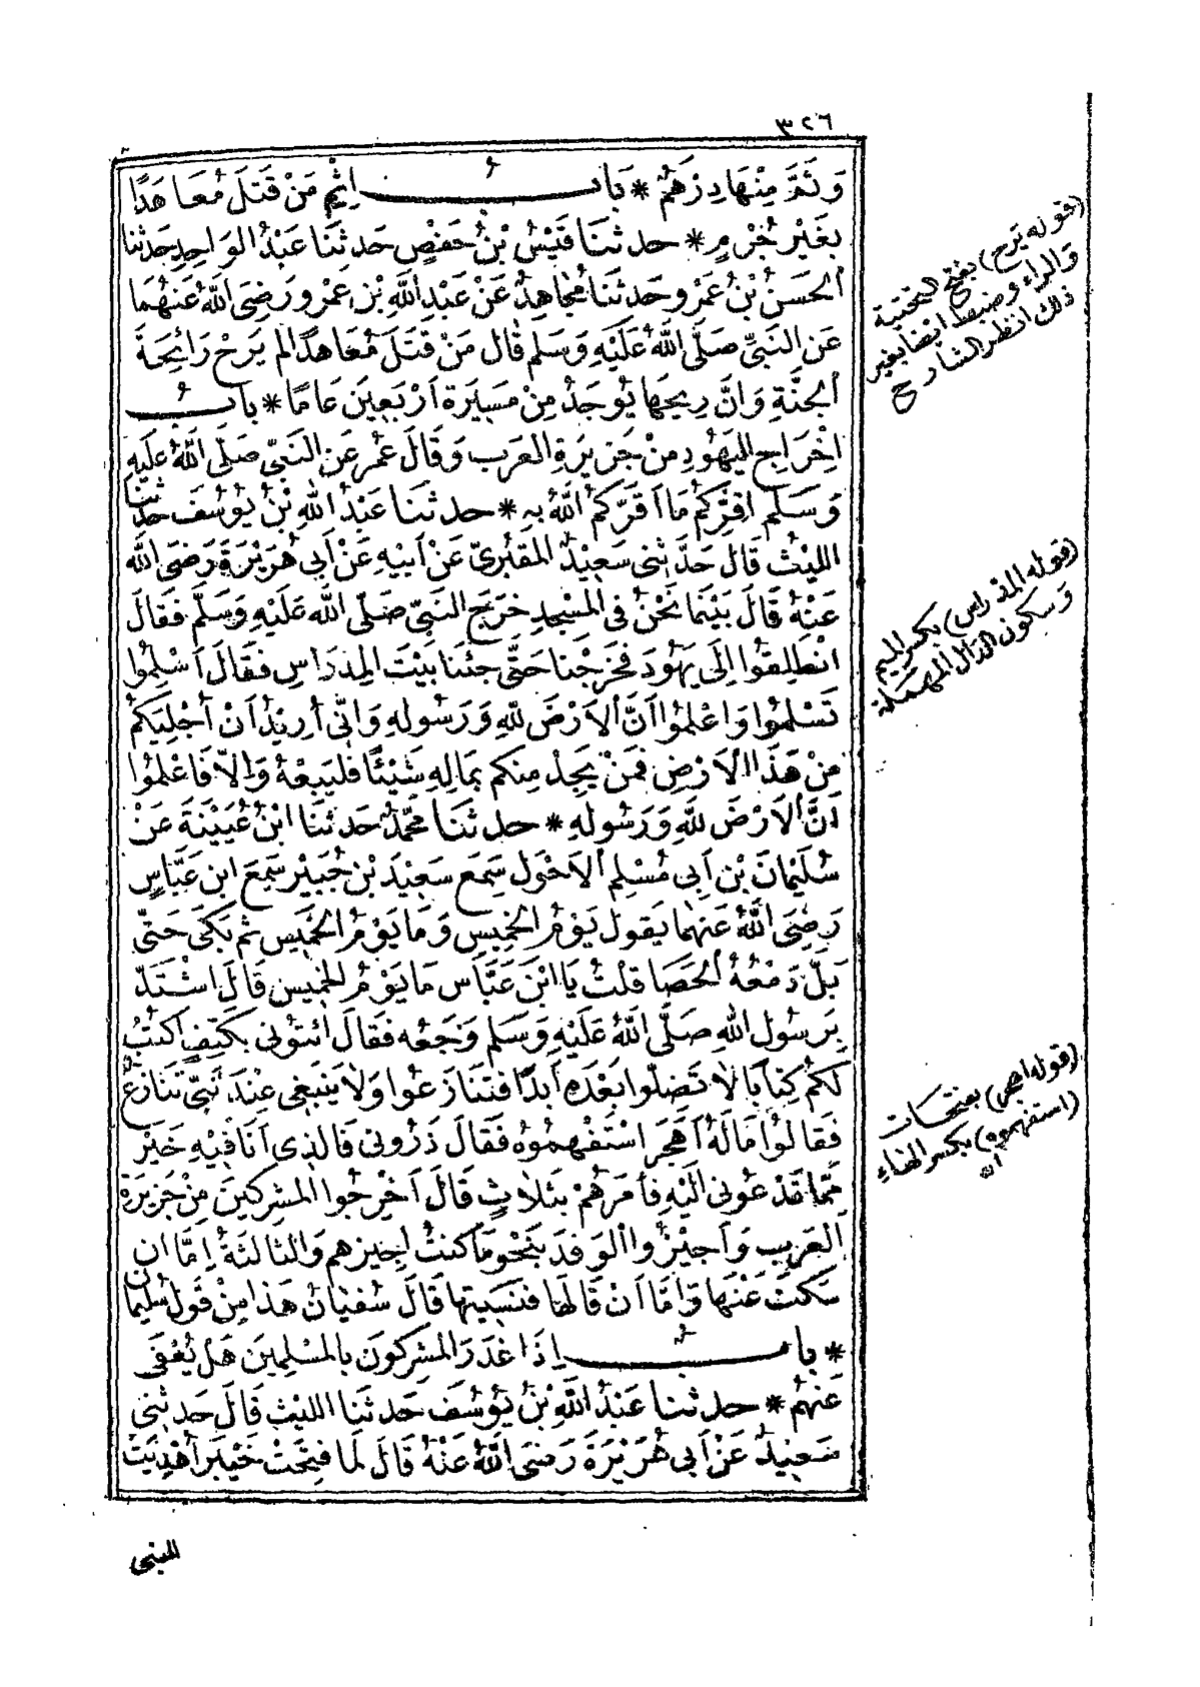 ٣٢٦
وَثَمَّ مِنْهَا دِرْهَمٌ * بَابُ إِثْمِ مَنْ قَتَلَ مُعَاهَدًا
بِغَيْرِ جُرْمٍ * حدثنَا قَيْسُ بْنُ حَفْصٍ حَدثنَا عَبْدُ الوَاحِدِ حَدثنَا
الحَسَنُ بْنُ عَمْرٍو حَدثنَا مُجَاهِدٌ عَنْ عَبْدِ اللَّهِ بْنِ عَمْرٍو رَضِيَ اللَّهُ عَنْهُمَا
عَنِ النَّبِيِّ صَلَّى اللَّهُ عَلَيْهِ وَسَلم قَال مَنْ قَتَلَ مُعَاهَدًا لَمْ يَرَحْ رَائِحَةَ
الجَنَّةِ وَانَّ رِيحَهَا يُوجَدُ مِنْ مَسِيَرةِ اَرْبَعِينَ عَامًا * بابُ
اِخْرَاجِ اليَهُودِ مِنْ جَزِيرَةِ العَرَب وَقَالَ عُمَر عَنِ النَبِيّ صَلَّى اللَّهُ عَلَيْهِ
وَسَلم اُقِرُّكُمْ مَا اَقَرَّكُمُ اللَّهُ بِهِ * حدثنَا عَبْدُ اللهِ بْنُ يُوسُفَ حدثنا
الليْثُ قَال حَدَّثَنِي سَعِيدٌ المَقْبُرِيّ عَنْ اَبِيهِ عَنْ أَبِي هُرَيْرَةَ رَضِيَ اللَّه
عَنْهُ قَالَ بَيْنَمَا نَحْنُ فِي المَسْجِدِ خَرَجَ النَبِيّ صَلّى اللَّه عَلَيْهِ وَسَلَّم فَقَالَ
انْطَلِقُوا اِلَى يَهُودَ فَخَرَجْنا حَتَّى جِئْنَا بَيْتَ المِدرَاسِ فَقَالَ اَسْلِمُوا
تَسْلَمُوا وَاعْلمُوا اَنَّ الاَرْضَ للهِ وَرَسُولِهِ وَانِّي أُرِيدُ اَنْ أُجْلِيَكُمْ
مِنْ هَذَا الاَرْضِ فَمَنْ يَجِدْ مِنكم بمَالِهِ شَيْئًا فَليَبِعْهُ وَالاّ فَاعْلمُوا
اَنَّ الاَرْضَ للهِ وَرَسُولِهِ * حدثنَا مُحَمَّدٌ حَدثنَا ابْنُ عُيَيْنَةَ عَنْ
سُلَيْمَانَ بْنِ اَبِي مُسْلِم الاَحْوَل سَمِعَ سَعِيدَ بْنَ جُبَيْر سَمِعَ ابن عَبَّاسٍ
رَضِيَ اللَّهُ عَنْهما يَقول يَوْمُ الخَمِيسِ وَمَا يَوْمُ الخَمِيس ثم بَكَى حَتَّى
بَلّ دَمْعُهُ الحَصَا قلْتُ يَا ابْنَ عَبَّاس مَا يَوْمُ الخمِيس قَالَ اشْتَدَّ
بِرَسُول اللهِ صَلَّى اللَّهُ عَلَيْهِ وَسَلم وَجَعُه فَقَالَ ائْتُوني بِكَتِفٍ اَكتُبْ
لَكُمْ كِتابًا لا تَضِلّوا بَعْدَه أَبدًا فَتنَازَعُوا وَلا يَنبَغِي عِنْدَ نَبِيّ تَنَازُعٌ
فَقالُوا مَا لَهُ أَهَجَرَ اسْتَفْهِمُوهُ فَقَالَ ذَرُوني فَالذِي اَنَا فِيهِ خَيْرٌ
مِمَّا تَدْعُونِي الَيْهِ فأَمَرَهُمْ بِثَلاثٍ قَالَ اَخْرِجُوا المُشرِكينَ مِنْ جَزِيرَةِ
العَرَبِ وَاَجِيْزُوا الوَفدَ بِنَحْوِ مَا كنتُ اُجِيزهم وَالثالِثَةُ اِمَّا ان
سَكَتَ عَنْهَا وَامَّا اَنْ قَالَهَا فنسِيتهَا قَالَ سُفيَانُ هَذا مِنْ قَوْلِ سُلَيْمَان
* بابُ اِذَا غَدَرَ المُشرِكُونَ بِالمُسْلِمِينَ هَلْ يُعْفَى
عَنهُمْ * حدثنا عَبْدُ اللَّهِ بْنُ يُوسُفَ حَدثنَا الليْث قَالَ حَدثني
سَعِيدٌ عَنْ اَبِي هُرَيْرَةَ رَضِيَ اللَّهُ عَنْهُ قَالَ لَمَا فُتِحَتْ خَيْبَر أُهْدِيَتْ
للبنى
(قوله يرح) بفتح التحتية
والراء وضبط ايضا بغير
ذلك انظر الشارح
(قوله المدراس) بكسر الميم
وسكون الدال المهملة
(قوله اهجر) بفتحات
(استفهموه) بكسر الهاء
اه